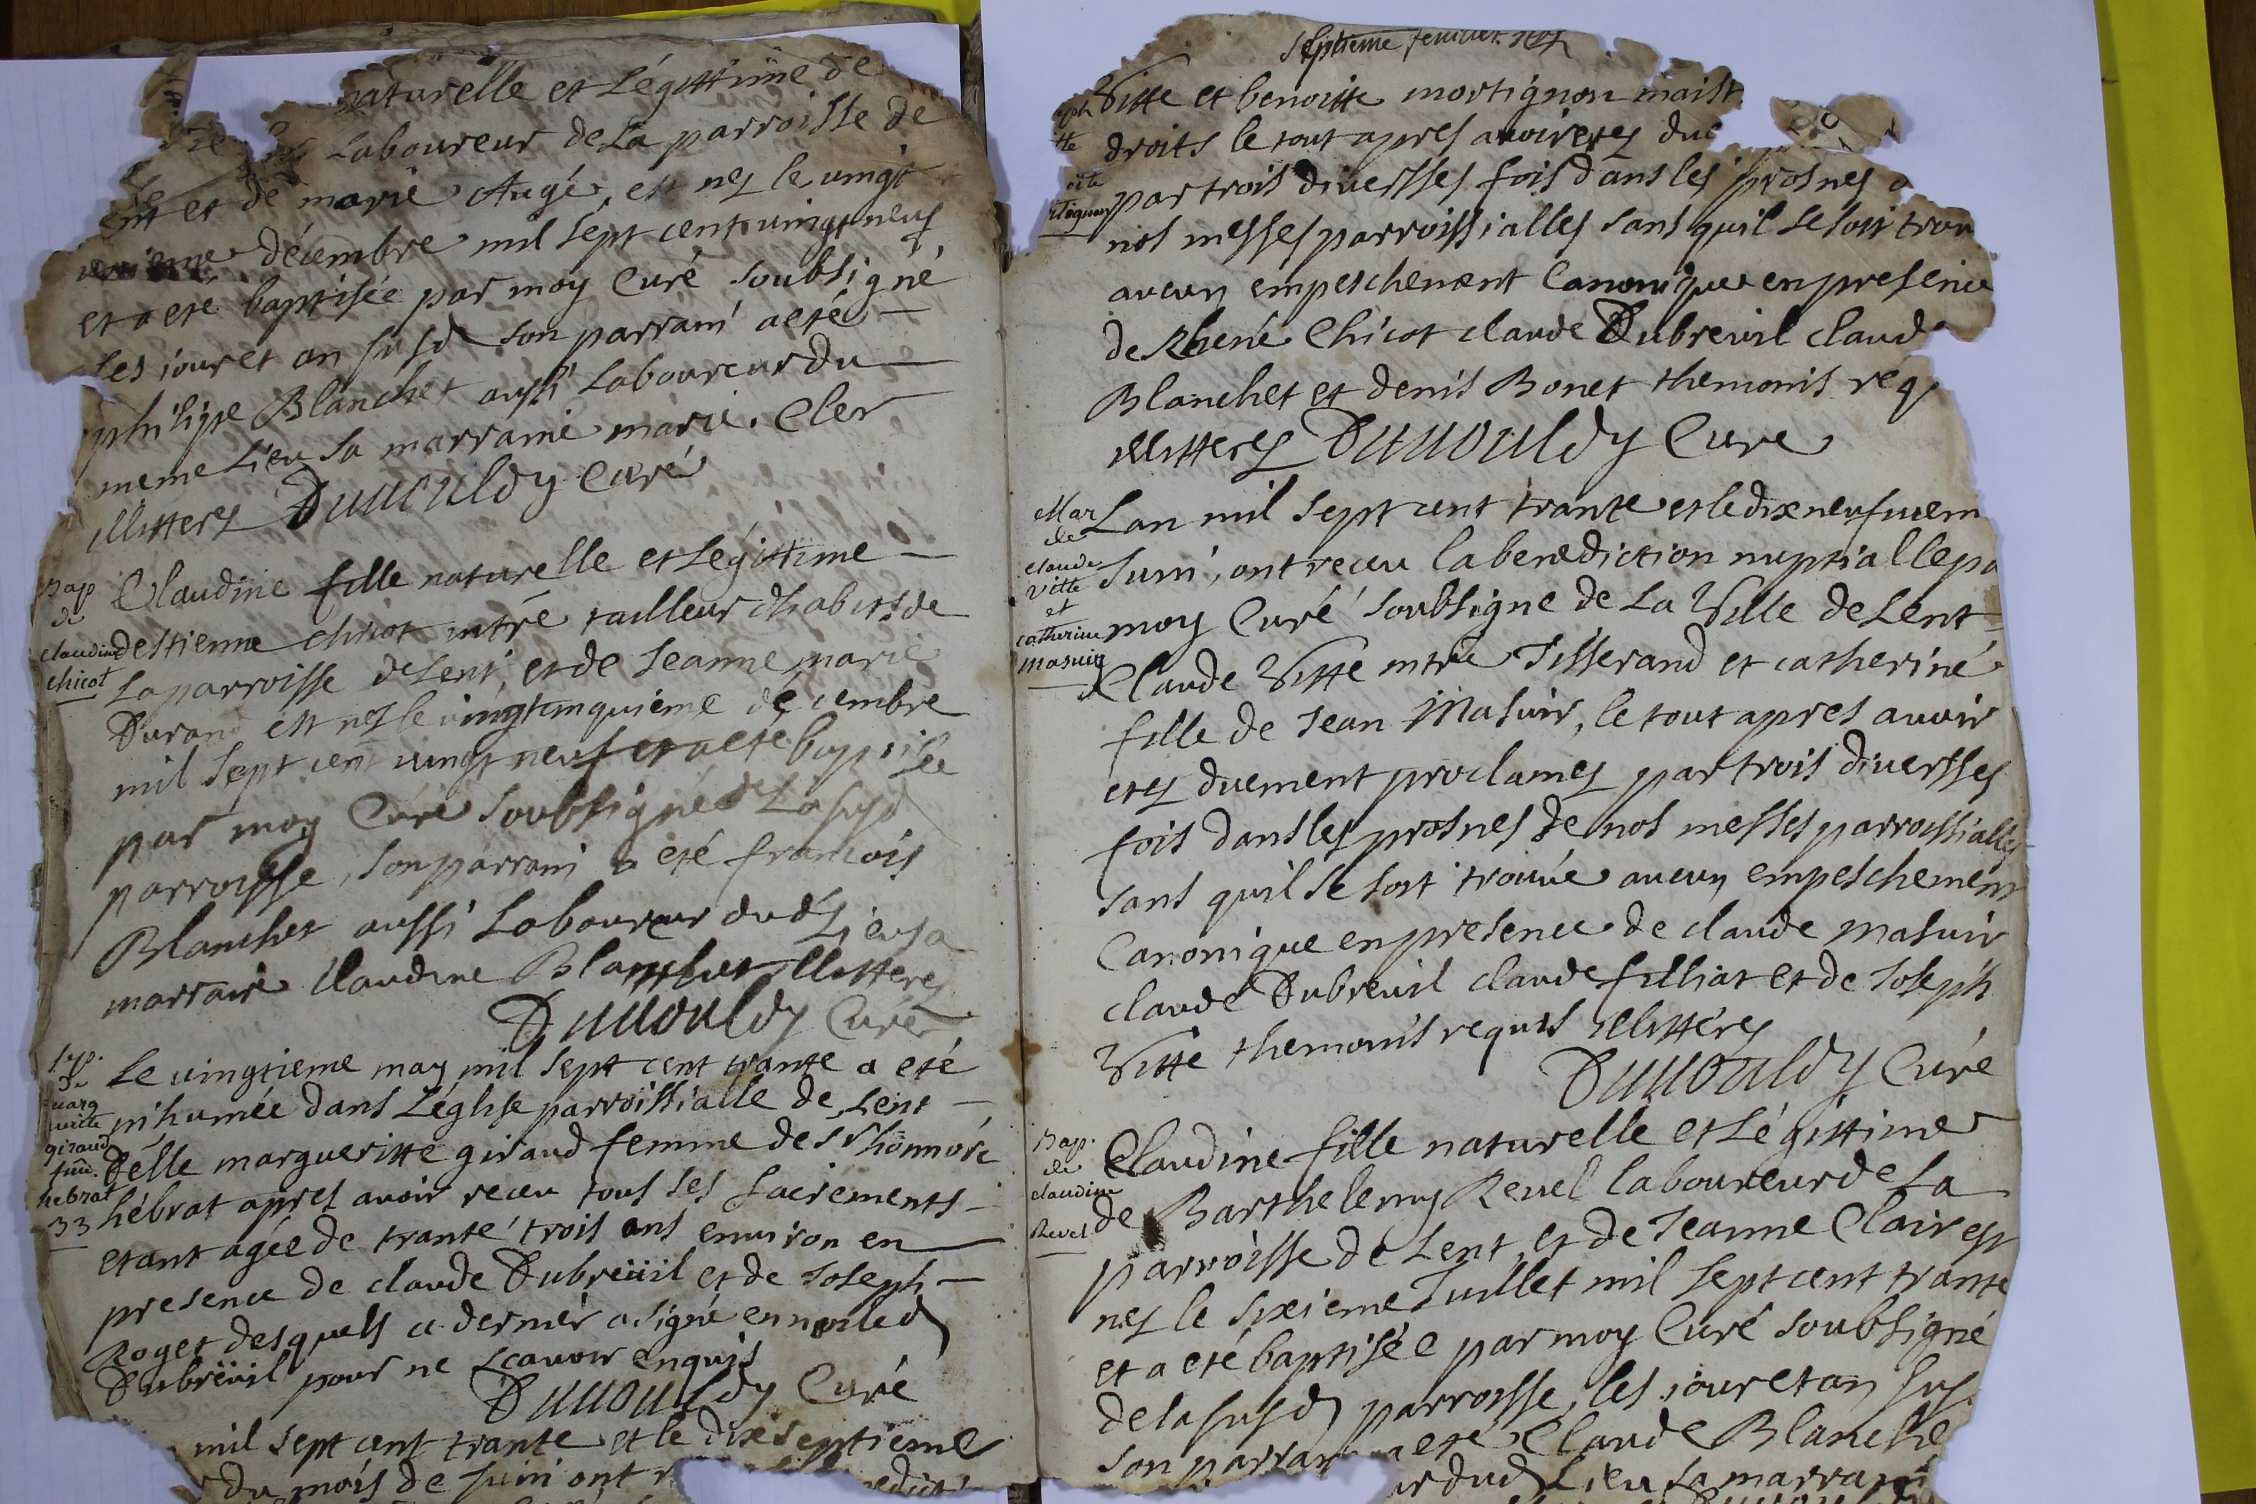 naturelle et Légittime de
Laboureur de La parroisse de
ent et de marie Augé, est nez le vingt
décembre mil sept cent vingt neuf
et a eté baptisée par moy Curé soubsigné
les jour et an susd son parrain a eté
philipe Blanchet aussi Laboureur du
meme Lieu sa marraine marie Cler
illitterez Duvouldy Curé
Bap
de
claudine
chicot
Claudine fille naturelle et Légittime
destienne chicot mtre tailleur dhabits de
La parroisse de Lent, et de Jeanne marie
Durand est nez le vingt cinquieme décembre
mil sept cent vingt neuf et a eté baptisée
par moy Curé soubsigné de La susd
parroisse, son parrain a eté francois
Blanchet aussi Laboureur dud Lieu sa
marraine Claudine Blanchet illitterez
Duvouldy Curé
de
marg
uerite
giraud
hebrat
33
Le vingtieme may mil sept cent trante a eté
inhumée dans Léglise parroissialle de Lent
Delle margueritte giraud femme de Sr honnoré
hébrat apres avoir receu tous ses sacrements
etant agée de trante trois ans environ en
presence de claude Dubreüil et de Joseph
Roget desquels ce dernier a signé en non led
Dubreüil pour ne scavoir enquis
Duvouldy Curé
mil sept cent trante et le dixseptieme
du mois de Juin ont
septieme feuillet
Vitte et benoitte mortignon maist
droits le tout apres avoir etez due
par trois diversses fois dans les prosnes
nos messes parroissialles sans quil se soit trou
aucun empeschement Canonique en presence
de Rhené Chicot claude Dubreuil claud
Blanchet et denis Bonet themonis req
illitterez Duvouldy Cure
Mar
de
claude
vitte
et
catherine
masuir
Lan mil sept cent trante et le dixneufuiem
Juin, ont receu la benediction nuptialle pa
moy Curé soubsigne de La Ville de Lent
Claude Vitte mtre Tisserand et catheriné
fille de Jean Masuir, le tout apres avoir
etez duement proclamez par trois diversses
fois dans les prosnes de nos messes parroissialles
sans quil se soit trouvé aucun empeschement
Canonique en presence de claude masuir
claude Dubreuil claude filliat et de Joseph
Vitte themonis requis illitterez
Duvouldy Curé
Bap.
de
claudine
Revel
Claudine fille naturelle et Légittime
de Barthelemy Revel laboureur de La
parroisse de Lent, et de Jeanne Clair est
nez le sixieme Juillet mil sept cent trante
et a eté baptisée par moy Curé soubsigné
de la susd parroisse, les jour et an sus
son parrain a eté Claude Blanche
dud Lieu sa marraine